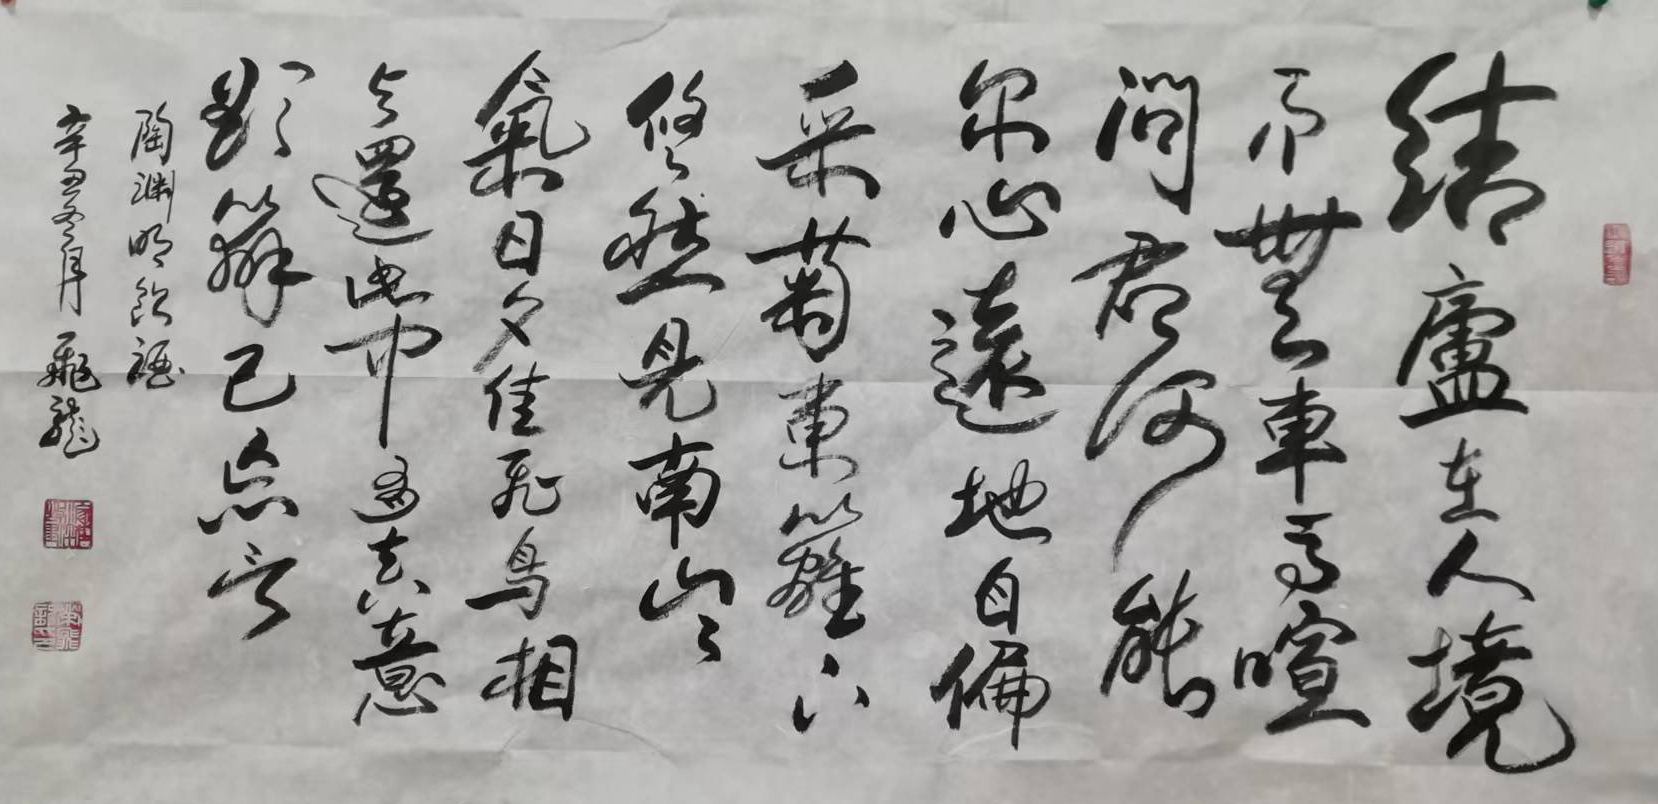 結廬在人境
而無車馬喧
問君何能
尔心遠地自偏
采菊東籬下
悠然見南山山
氣日夕佳飛鳥相
与還此中有真意
欲辨已忘言
陶淵明飲酒
辛丑冬月 飛龍